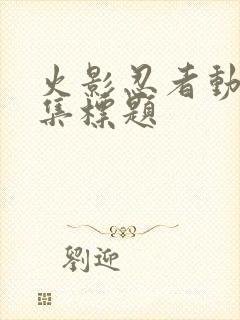 火影忍者動
集標題
劉迎